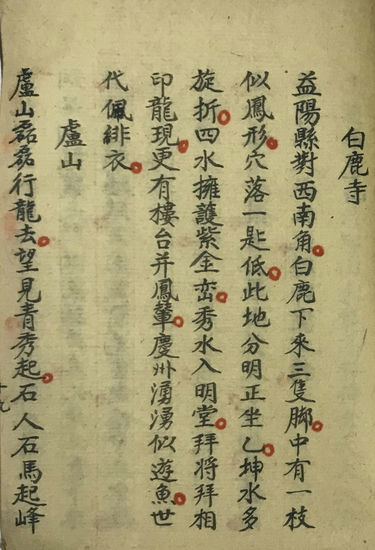 白鹿寺
益陽縣對西南角白鹿下來三隻脚中有一枝
似鳳形穴落一匙低此地分明正坐乙坤水多
旋折四水擁護紫金峦秀水入明堂拜将拜相
印龍現更有樓台并鳳輦慶州湧湧似遊魚世
代佩緋衣
盧山
盧山磊磊行龍去望見青秀起石人石馬起峰
十九